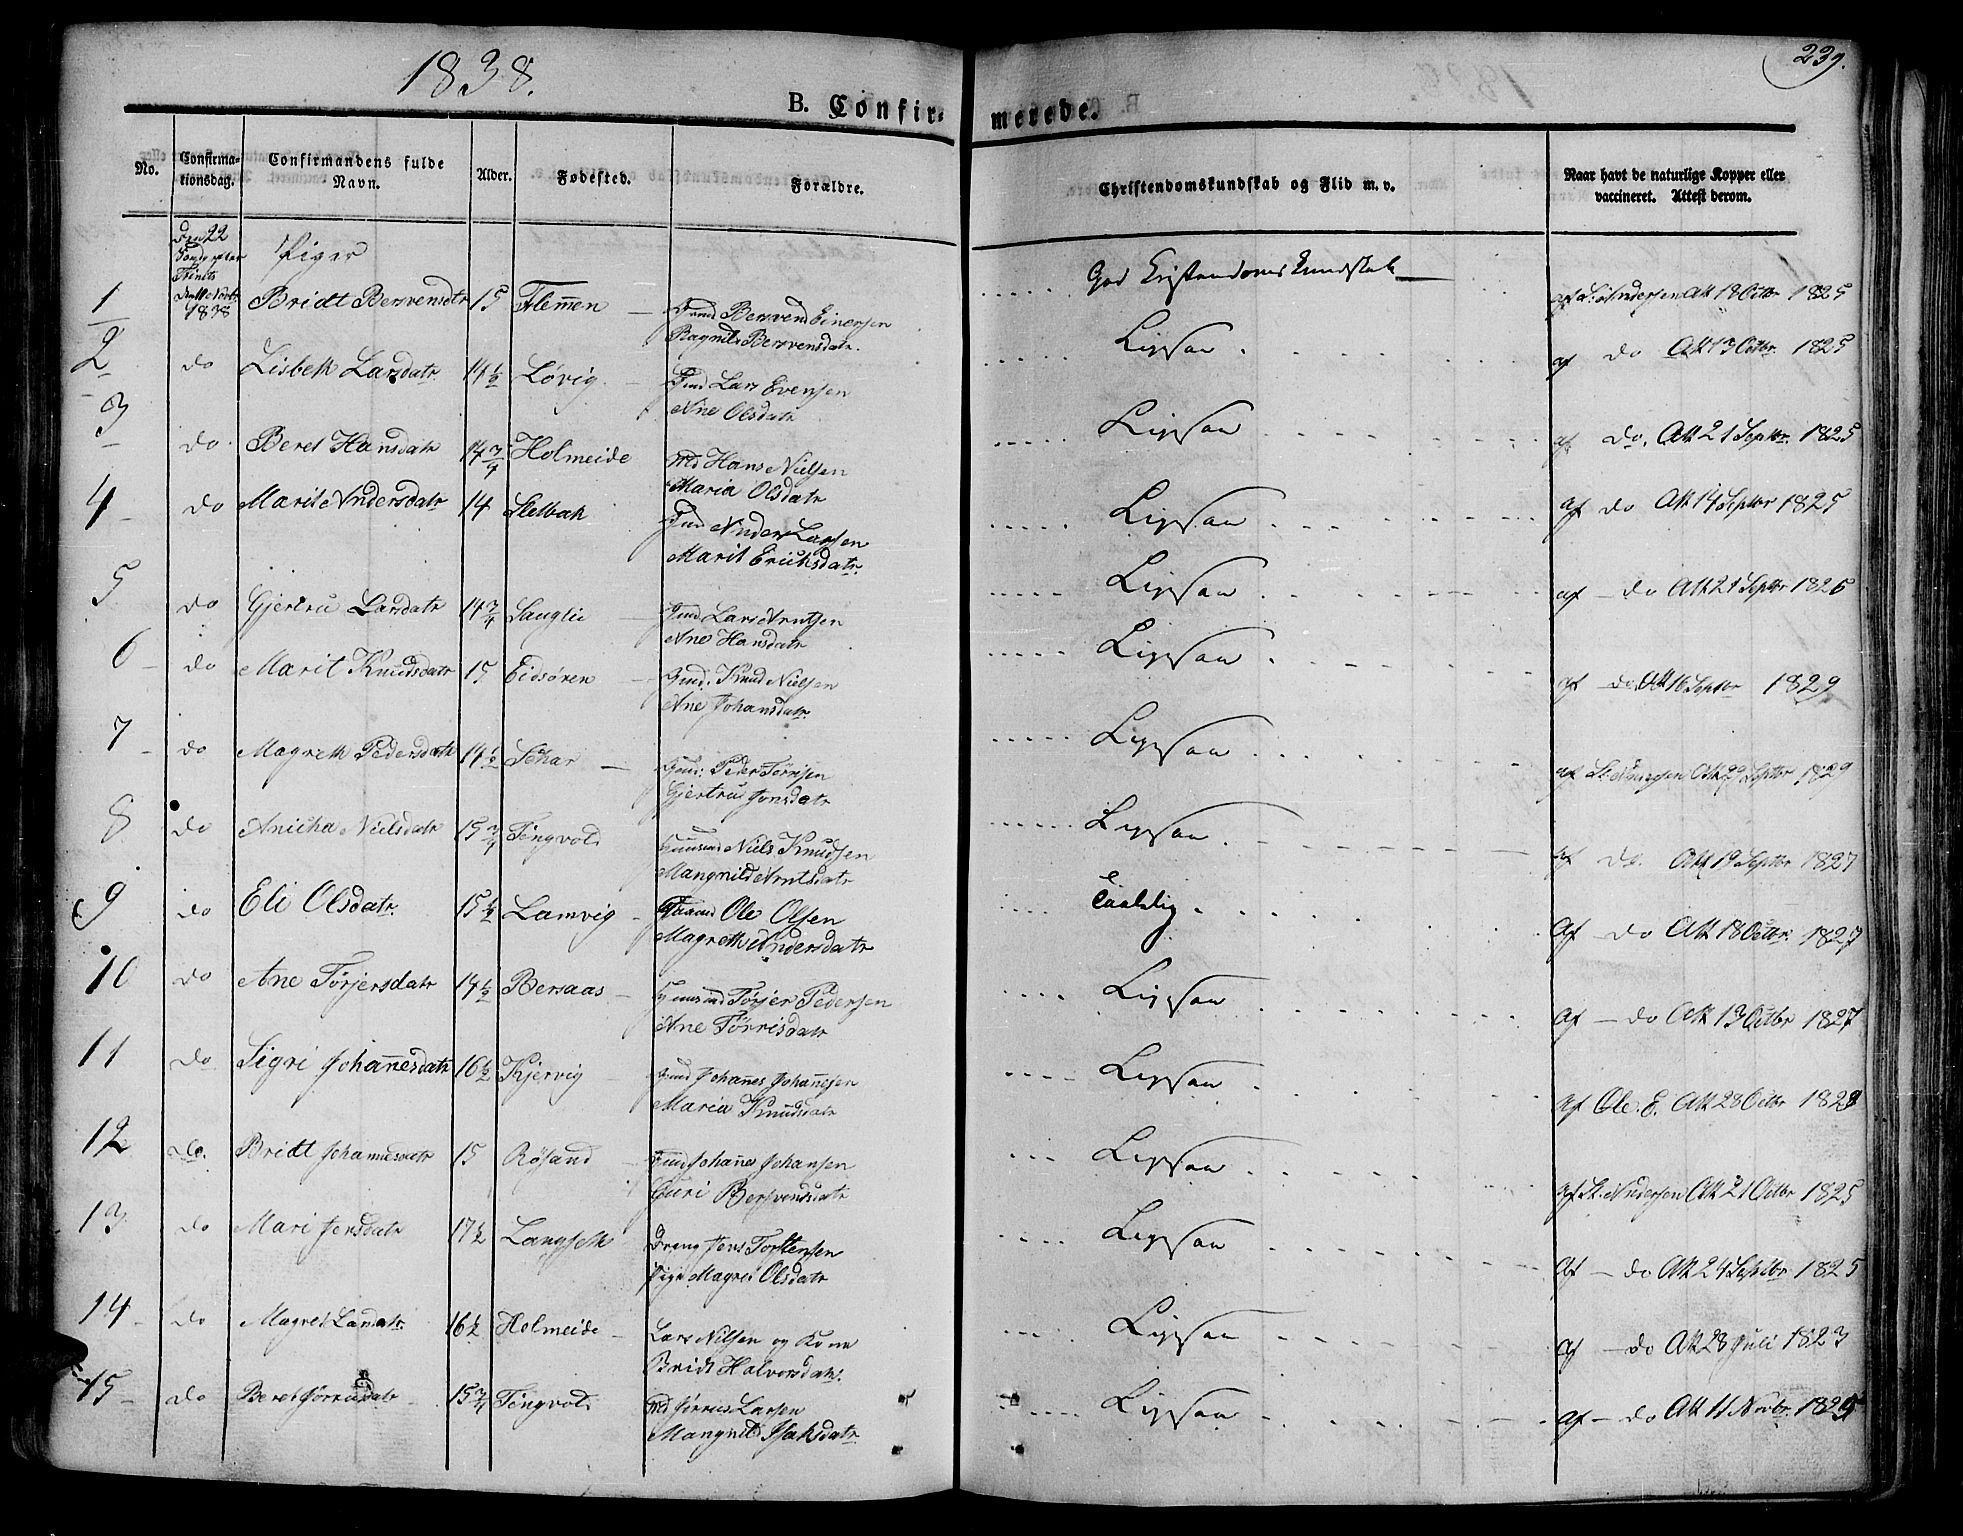 1838.
239.
B. Confir-
merede.
No.
Confirma-
tionsdag.
Confirmandens fulde
Navn.
Alder.
Fødested.
Forældre.
Christendomskundskab og Flid m. v.
Naar havt de naturlige Kopper eller
vaccineret. Attest derom.
Den 22
Søndag efter
Trinits
1838
Piger
1 Bridt Bersvendtr 15 Flemmen
Bersvend Einersen
Ragnild Bersvensdatr.
God Kristendoms Kundskab
af Andersen Att 13 Octbr 1825
2 do Lisbeth Larsdatr 14 1/2 Løvig
Lars Evensen
Ane Olsdatr
Ligesaa
af do Att 13 Octbr 1825
3 do Beret Hansdatr 14 3/4 Holmeide
Hans Nielsen
Maria Olsdatr
Ligesaa
af do. Att 21 Septbr 1825
4 do Marit Andersdatr 14 Stelbak
Anders Larsen
Marit Erichsdatr.
Ligesaa
af do Att 14 Septbr 1825
5 do Gjertru Larsdatr 14 3/4 Sauglie
Gmd Lars Arntsen
Ane Hansdatr
Ligesaa
af do Att 21 Septbr 1826
6 do Marit Knudsdatr 15 Eidsøren
Gmd: Knud Nielsen
Ane Johansdatr.
Ligesaa
af do Att 16 Septbr 1829
7 do Magreth Pedersdatr 14 1/2 Schar
Gmd: Peder Tørrisen
Gjertru Jonsdatr
Ligesaa
af Att 29 Septbr 1829
8 do Anicha Nielsdatr 15 3/4 Tingvold
Huusmd Niels Knudsen
Mangnild Arntsdatr
Ligesaa
af do. Att 19 Septbr 1827
9 do Eli Olsdatr. 15 1/2 Lamvig
Ole Olsen
Magreth Andersdatr
Taalelig
af do Att 18 Octbr. 1827
10 do Ane Tørjersdatr 14 1/2 Bersaas
Huusmd Tørjer Pedersen
Ane Tørrisdatr
Ligesaa
af do Att 13 Octbr 1827
11 do Sigri Johannesdatr 16 1/2 Kjervig
Gmd Johannes Johannesen
Maria Knudsdatr
Ligesaa
af Ole E. Att 28 Octbr 1828
12 do. Bridt Johannesdatr 15 Røsand
Gmd Johannes Johansen
Guri Bersvendsdatr
Ligesaa
af Andersen Att 21 Octbr 1825
13 do Mari Jensdatr 17 1/2 Langseth
Dreng Jens Torstensen
Pige Magret Olsdatr
Ligesaa
af do Att 24 Septbr 1825
14 do Magret Larsdatr. 16 1/2 Holmeide
Lars Nilsen og Kone
Bridt Halvorsdatr.
Ligesaa
af do Att 28 Juli 1823
15 do Beret Jørrisdatr 15 3/4 Tingvold
Jørris Larsen
Mangnild Isaksdatr
Ligesaa
af do Att 11 Novbr. 1825